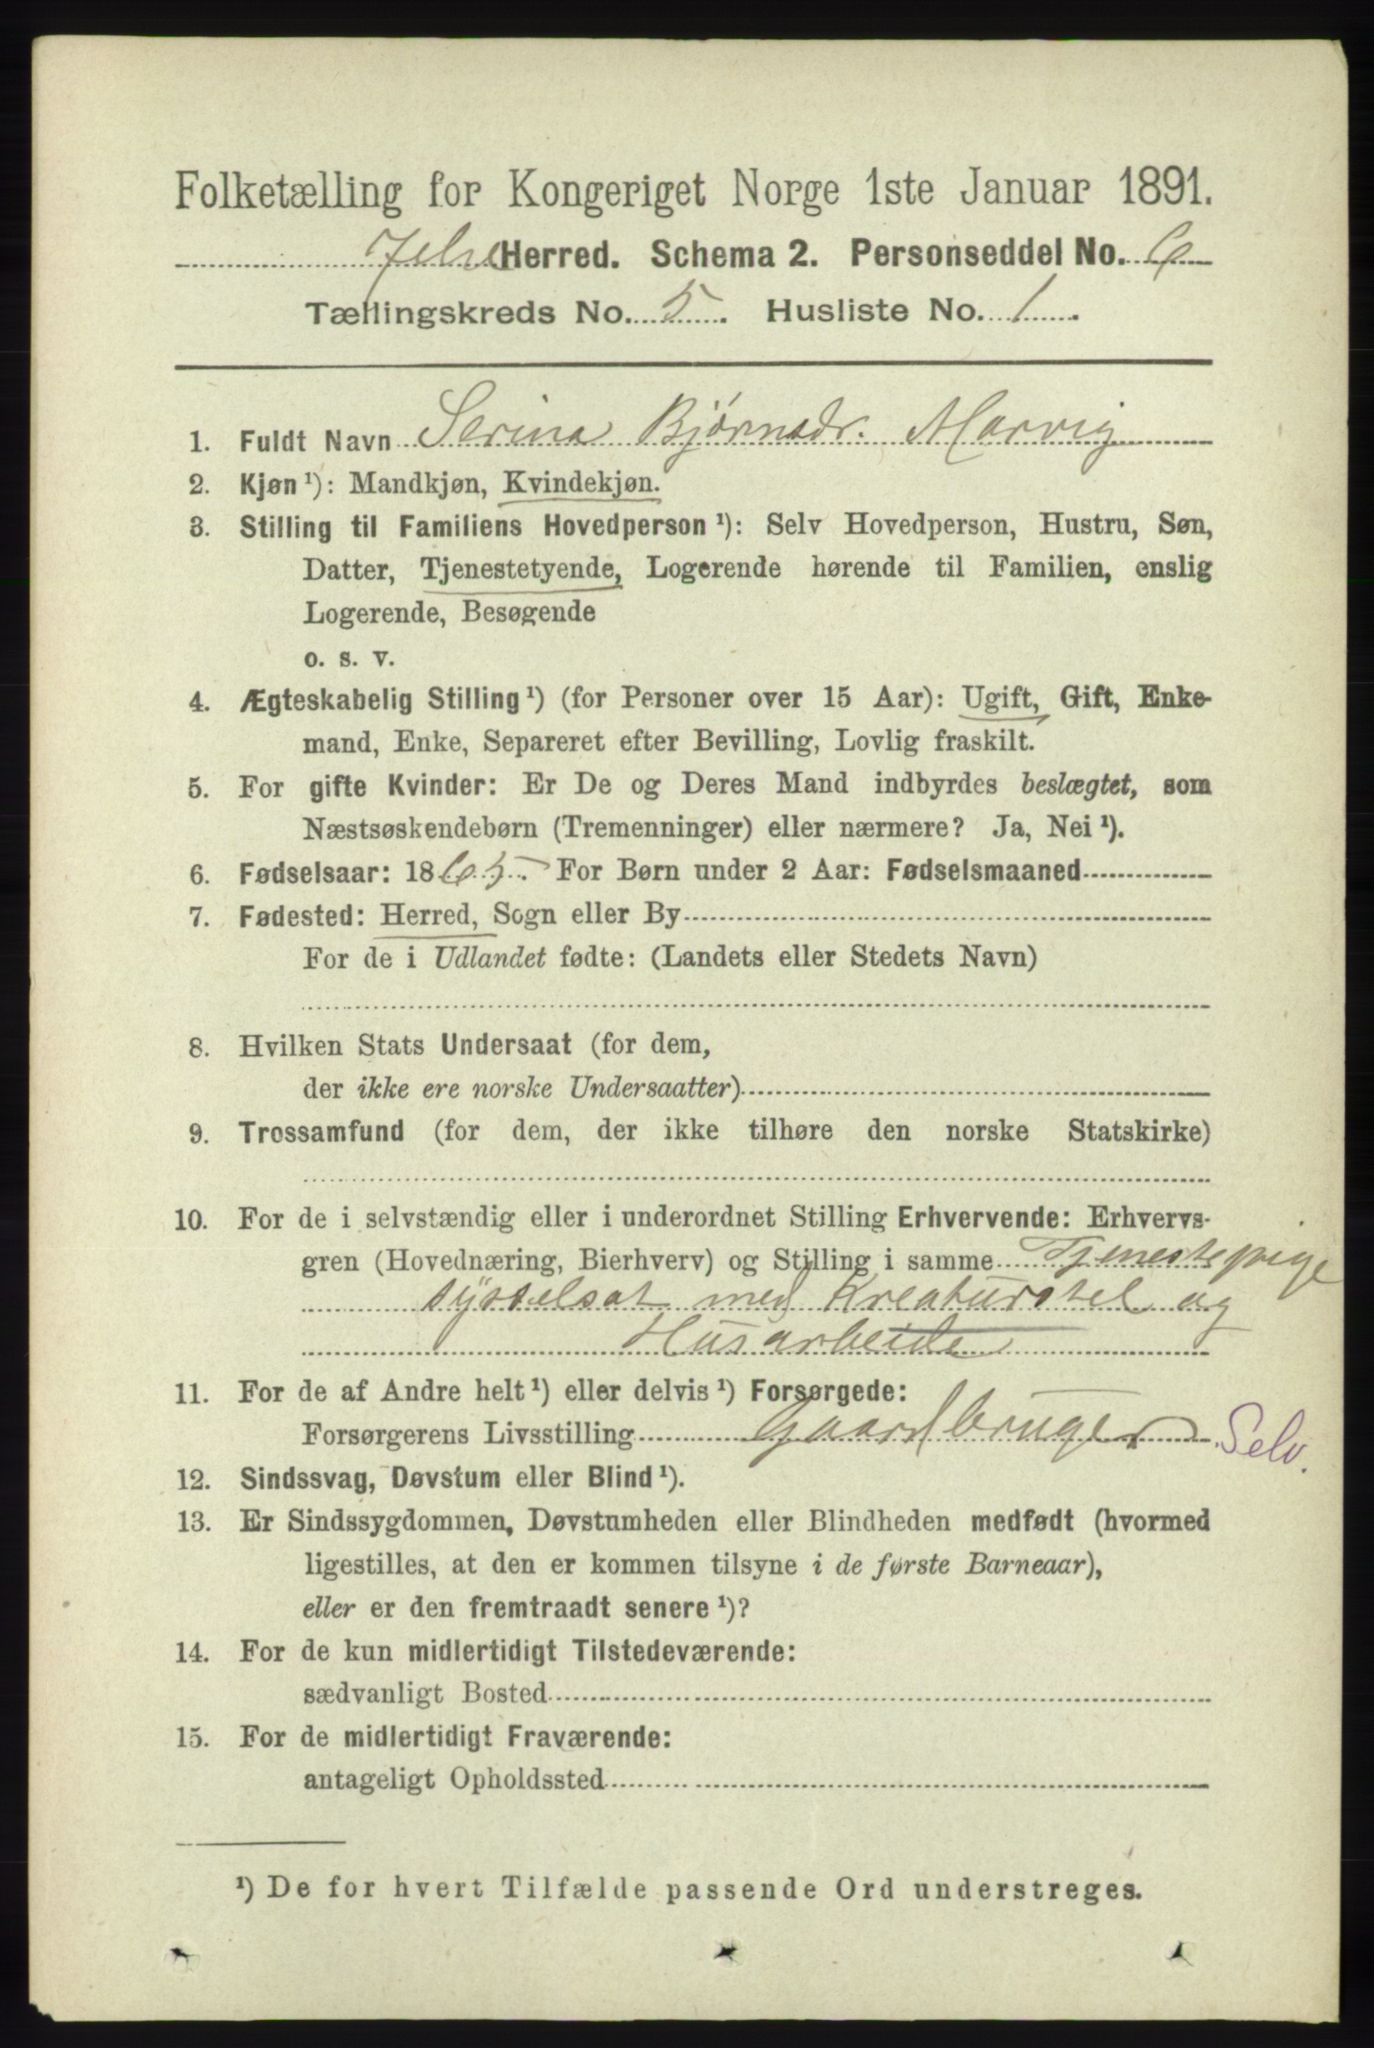 Folketælling for Kongeriget Norge 1ste Januar 1891.
Jelse Herred. Schema 2. Personseddel No. 6
Tællingskreds No. 5. Husliste No. 1.
1. Fuldt Navn Serina Bjørnsdr. Marvig
2. Kjøn ¹): Mandkjøn, Kvindekjøn.
3. Stilling til Familiens Hovedperson ¹): Selv Hovedperson, Hustru, Søn,
Datter, Tjenestetyende, Logerende hørende til Familien, enslig
Logerende, Besøgende
o. s. v.
4. Ægteskabelig Stilling ¹) (for Personer over 15 Aar): Ugift, Gift, Enke-
mand, Enke, Separeret efter Bevilling, Lovlig fraskilt.
5. For gifte Kvinder: Er De og Deres Mand indbyrdes beslægtet, som
Næstsøskendebørn (Tremenninger) eller nærmere? Ja, Nei ¹).
6. Fødselsaar: 1865. For Børn under 2 Aar: Fødselsmaaned
7. Fødested: Herred, Sogn eller By
For de i Udlandet fødte: (Landets eller Stedets Navn)
8. Hvilken Stats Undersaat (for dem,
der ikke ere norske Undersaatter)
9. Trossamfund (for dem, der ikke tilhøre den norske Statskirke)
10. For de i selvstændig eller i underordnet Stilling Erhvervende: Erhvervs-
gren (Hovednæring, Bierhverv) og Stilling i samme Tjenestepige
sysselsat med Kreaturstel og
Husarbeide
11. For de af Andre helt ¹) eller delvis ¹) Forsørgede:
Forsørgerens Livsstilling Gaardbruger Selv.
12. Sindssvag, Døvstum eller Blind ¹).
13. Er Sindssygdommen, Døvstumheden eller Blindheden medfødt (hvormed
ligestilles, at den er kommen tilsyne i de første Barneaar),
eller er den fremtraadt senere ¹)?
14. For de kun midlertidigt Tilstedeværende:
sædvanligt Bosted
15. For de midlertidigt Fraværende:
antageligt Opholdssted
¹) De for hvert Tilfælde passende Ord understreges.